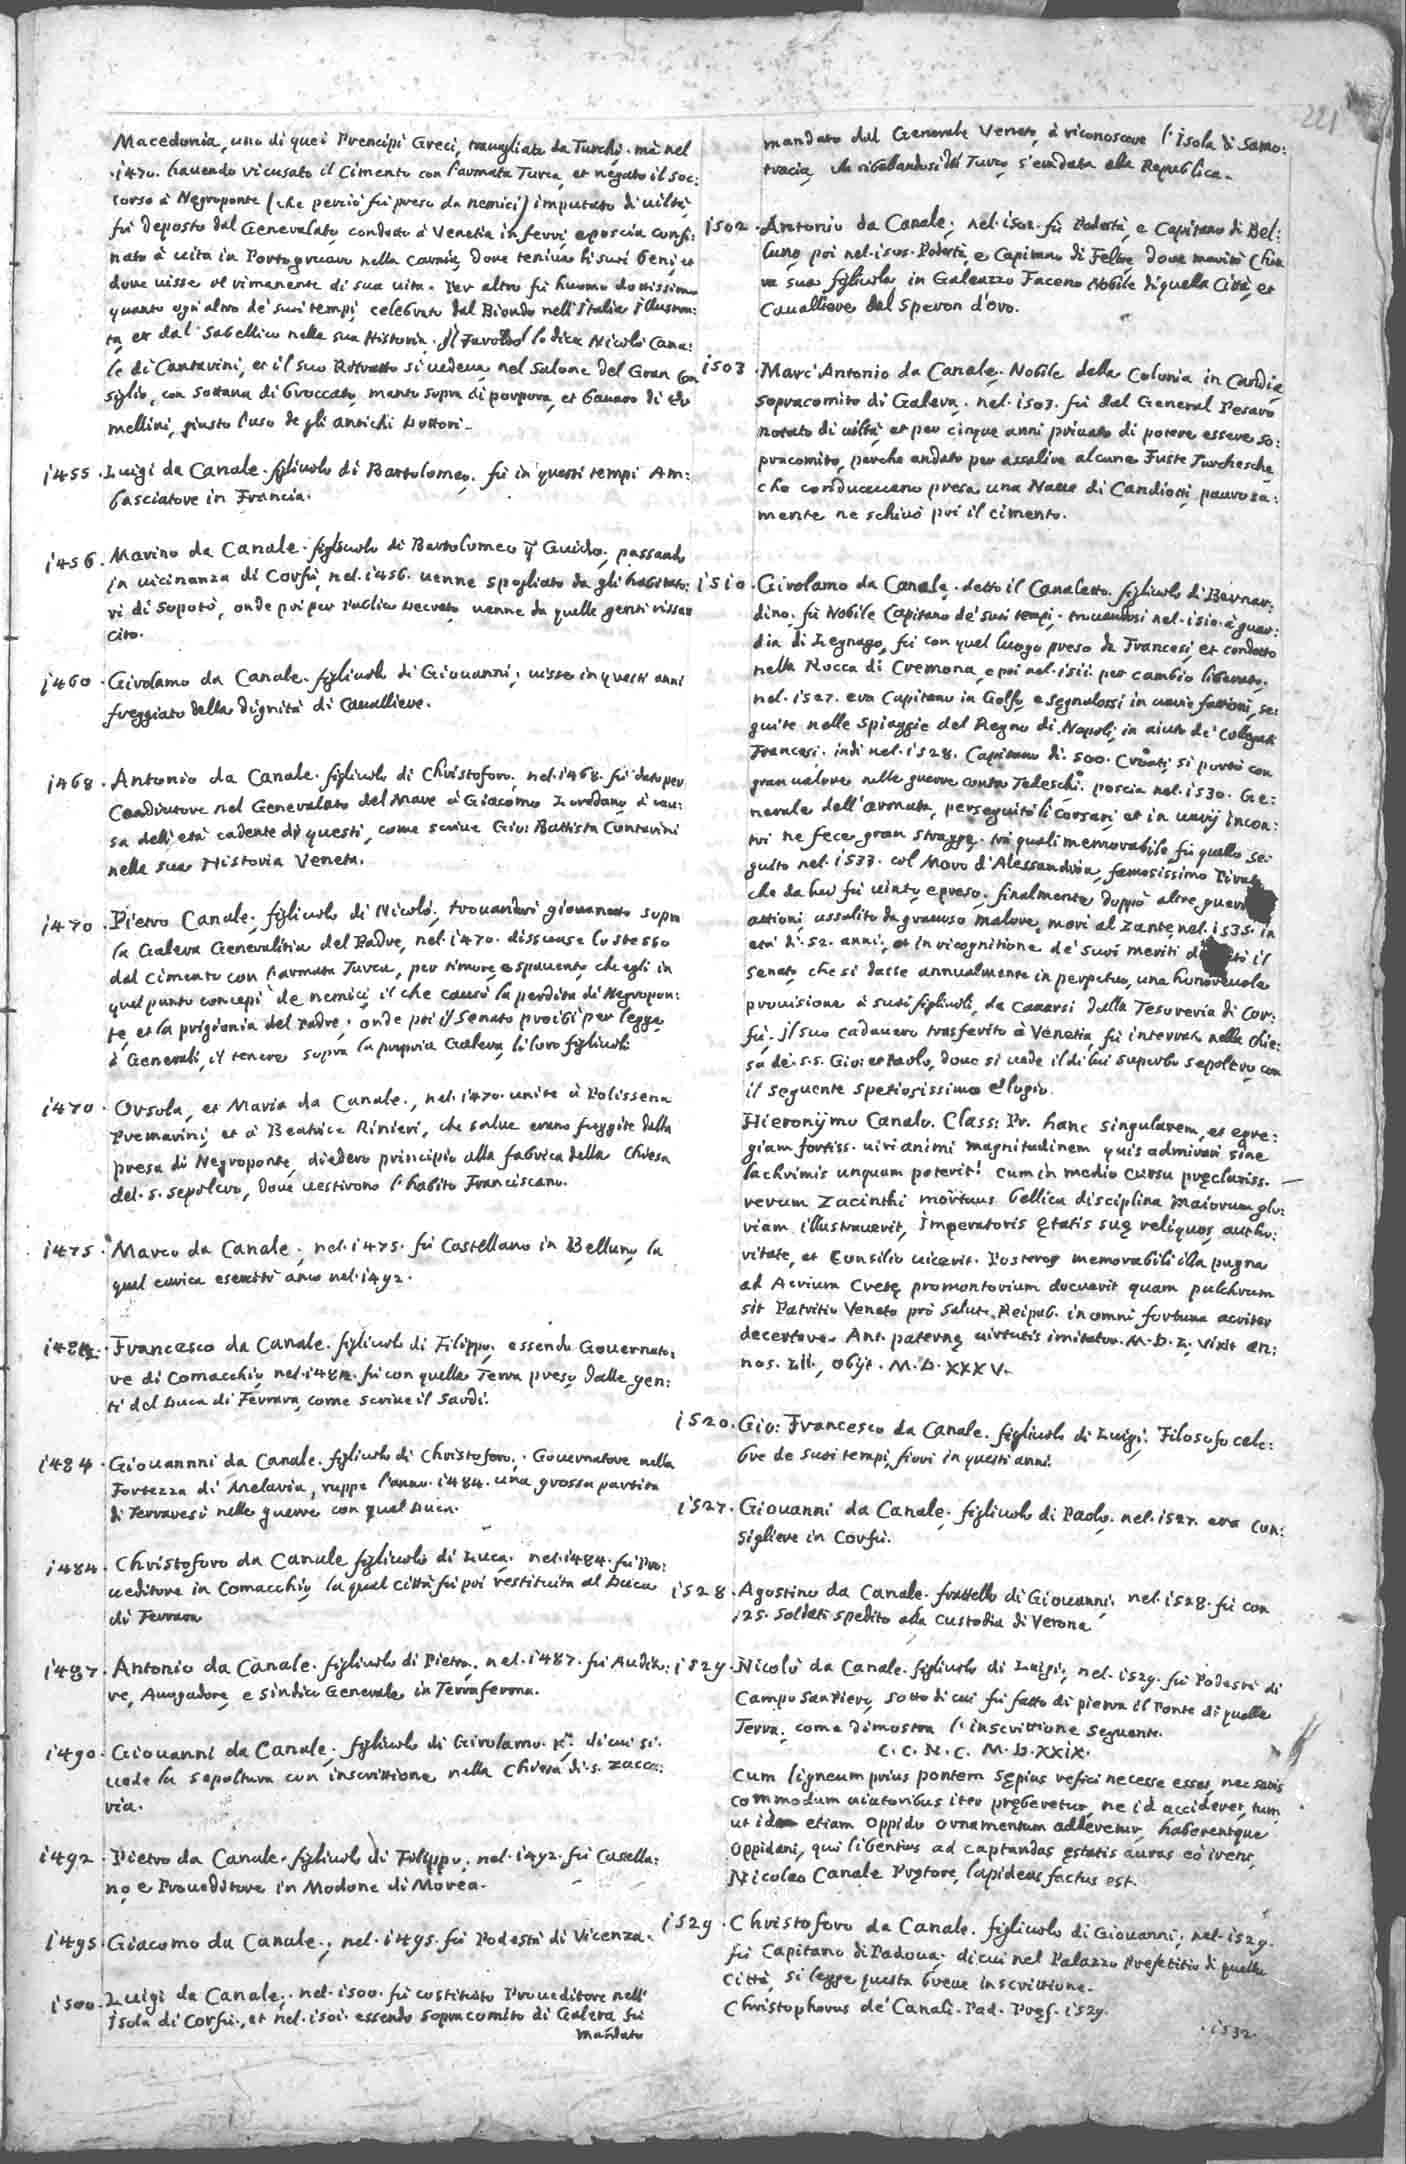 221
Macedonia, uno di quei Prencipi Greci, trauagliato da Turchi. mà nel
·1470· hauendo ricusato il Cimento con l'armata Turca, et negato il soc:
corso à Negroponte (che perciò fu preso da nemici) imputato di uiltà,
fù deposto dal Generalato, condotto à Venetia in ferri, e poscia confi:
nato à uita in Portogruaro nella Carnia, doue teniua li suoi beni, et
doue uisse il rimanente di sua uita. Per altro fù huomo dottissimo
quanto ogn'altro de' suoi tempi, celebrato dal Biondo nell'Italia illustra:
ta, et dal Sabellico nella sua Historia. Il Faroldo lo dice Nicolò Cana:
le di Cantarini, et il suo Ritratto si uedeua nel Salone del Gran Con
siglio, con sottana di broccato, manto sopra di porpora, et bauaro di Er
mellini, giusto l'uso de gli antichi Dottori.
1455. Luigi da Canale. figliuolo di Bartolomeo. fù in questi tempi Am:
basciatore in Francia.
1456. Marino da Canale. figliuolo di Bartolomeo q Guido, passando
in uicinanza di Corfù, nel. 1456. uenne spogliato da gli habitato:
ri di Sopotò, onde poi per Publico Decreto uenne da quelle genti risar
cito.
1460. Girolamo da Canale. figliuolo di Giouanni, uisse in questi anni
freggiato della dignità di Caualliere.
1468. Antonio da Canale. figliuolo di Christoforo, nel. 1468. fù dato per
Coadiutore nel Generalato del Mare à Giacomo Loredano à cau:
sa dell'età cadente di questi, come scriue Gio: Battista Contarini
nella sua Historia Veneta.
1470. Pietro Canale, figliuolo di Nicolò, trouandosi giouanetto sopra
la Galera Generalitia del Padre, nel. 1470. dissuase lo stesso
dal cimento con l'armata Turca, per timore e spauento, che egli in
quel punto concepì de nemici, il che causò la perdita di Negropon:
te, et la prigionia del Padre. onde poi il Senato proibì per legge
à Generali, il tenere sopra la propria Galera li loro figliuoli
1470. Orsola, et Maria da Canale., nel. 1470. unite à Polissena
Premarini, et à Beatrice Rinieri, che salue erano fuggite dalla
presa di Negroponte, diedero principio alla fabrica della Chiesa
del. S. Sepolcro, doue uestirono l'habito Franciscano.
1475. Marco da Canale, nel. 1475. fù Castellano in Belluno, la
qual carica esercitò anco nel. 1492.
148 . Francesco da Canale. figliuolo di Filippo, essendo Gouernato:
re di Comacchio, nel. 148 . fù con quella Terra preso dalle gen:
ti del Duca di Ferrara, come scriue il Sardi.
1484. Giouannni da Canale. figliuolo di Christoforo, Gouernatore nella
Fortezza di Melaria, ruppe l'anno. 1484. una grossa partita
di Ferraresi nelle guerre con quel Duca.
1484. Christoforo da Canale figliuolo di Luca. nel. 1484. fù Pro:
ueditore in Comacchio, la qual città fù poi restituita al Duca
di Ferrara
1487. Antonio da Canale. figliuolo di Pietro, nel. 1487. fù Audito:
re, Auogadore, e Sindico Generale in Terraferma.
1490. Giouanni da Canale, figliuolo di Girolamo. di cui si
uede la sepoltura con inscrittione nella Chiesa di. S. Zacca:
ria.
1492. Pietro da Canale. figliuolo di Filippo, nel. 1492. fù Castella:
no, e Proueditore in Modone di Morea.
1495. Giacomo da Canale., nel. 1495. fù Podestà di Vicenza.
1500. Luigi da Canale,. nel. 1500. fù costituito Proueditore nell'
Isola di Corfù., et nel. 1501. essendo Sopracomito di Galera fù
mandato
mandato dal Generale Veneto, à riconoscere l'Isola di Samo:
tracia, che ribellandosi dal Turco, s'era data alla Republica.
1502. Antonio da Canale, nel. 1502. fù Podestà, e Capitano di Bel:
luno, poi nel. 1505. Podestà, e Capitano di Feltre, doue maritò Chia
ra sua figliuola in Galeazzo Faceno Nobile di quella Città, et
Caualliere dal Speron d'oro.
1503. Marc'Antonio da Canale. Nobile della Colonia in Candia,
sopracomito di Galera. nel. 1503. fù dal General Pesaro
notato di uiltà, et per cinque anni priuato di potere essere so:
pracomito, perche andato per assalire alcune Fuste Turchesche,
che conduceuano presa una Naue di Candiotti, paurosa:
mente ne schiuò poi il cimento.
1510. Girolamo da Canale. detto il Canaletto. figliuolo di Bernar:
dino. fù Nobile Capitano de' suoi tempi. trouandosi nel. 1510. à guar:
dia di Legnago, fù con quel luogo preso da Francesi, et condotto
nella Rocca di Cremona, e poi nel. 1511. per cambio liberato.
nel. 1527. era Capitano in Golfo, e segnalossi in uarie fattioni, se:
guite nelle Spiaggie del Regno di Napoli, in aiuto de' Collegati
Francesi. indi nel. 1528. Capitano di. 500. Croati, si portò con
gran ualore nelle guerre contra Tedeschi. poscia nel. 1530. Ge:
nerale dell'armata, perseguitò li Corsari, et in uarij incon:
tri ne fece gran stragge. trà quali memorabile fù quello se:
guito nel. 1533. col Moro d'Alessandria, famosissimo Pirata
che da lui fù uinto, e preso. finalmente doppò altre
attioni, assalito da grauoso malore, morì al Zante, nel. 1535. in
età di. 52. anni, et in ricognitione de' suoi meriti il
Senato, che si dasse annualmente in perpetuo, una honoreuole
prouisione à suoi figliuoli, da cauarsi dalla Tesoreria di Cor:
fù. Il suo cadauero trasferito à Venetia, fù interrato nella Chie:
sa de'. S.S. Gio: et Paolo, doue si uede il di lui superbo sepolcro, con
il seguente spetiosissimo Ellogio.
Hieronijmo Canalo. Class: Pr. hanc singularem, et egre:
giam fortiss. uiri animi magnitudinem quis admirari sine
lachrimis unquam poterit! cum in medio cursu pręclariss.
rerum Zacinthi mortuus bellica disciplina maiorum glo:
riam illustrauerit, Imperatoris ętatis suę reliquos, autho:
ritate, et Consilio uicerit. Posteros memorabili illa pugna
ad Acrium Cretę promontorium docuerit quam pulchrum
sit Patritio Veneto prò salute Reipub. in omni fortuna acriter
decertare. Ant. paternę uirtutis imitator. M. D. Z. Vixit an:
nos. LII. Obijt. M. D. XXXV.
1520. Gio: Francesco da Canale. figliuolo di Luigi. Filosofo cele:
bre de suoi tempi, fiorì in questi anni.
1527. Giouanni da Canale. figliuolo di Paolo, nel. 1527. era Con:
sigliere in Corfù.
1528. Agostino da Canale. frattello di Giouanni, nel. 1528. fù con
125. soldati spedito alla custodia di Verona
1529. Nicolò da Canale. figliuolo di Luigi, nel. 1529. fù Podestà di
Campo San Piero, sotto di cui fù fatto di pietra il Ponte di quella
Terra, come dimostra l'inscrittione seguente.
C. C. N. C. M. D. XXIX.
Cum ligneum prius pontem sępius refici necesse esset, nec satis
commodum uiatoribus iter pręberetur, ne id accideret, tum
ut idem etiam oppido ornamentum adderetur, haberentque
oppidani, qui libentius ad captandas ęstatis auras eo irent,
Nicolao Canale Prętore, lapideus factus est.
1529. Christoforo da Canale. figliuolo di Giouanni, nel. 1529.
fù Capitano di Padoua, di cui nel Palazzo Prefetitio di quella
Città, si legge questa breue inscrittione.
Christophorus de' Canali. Pad. Pręf. 1529.
·1532·